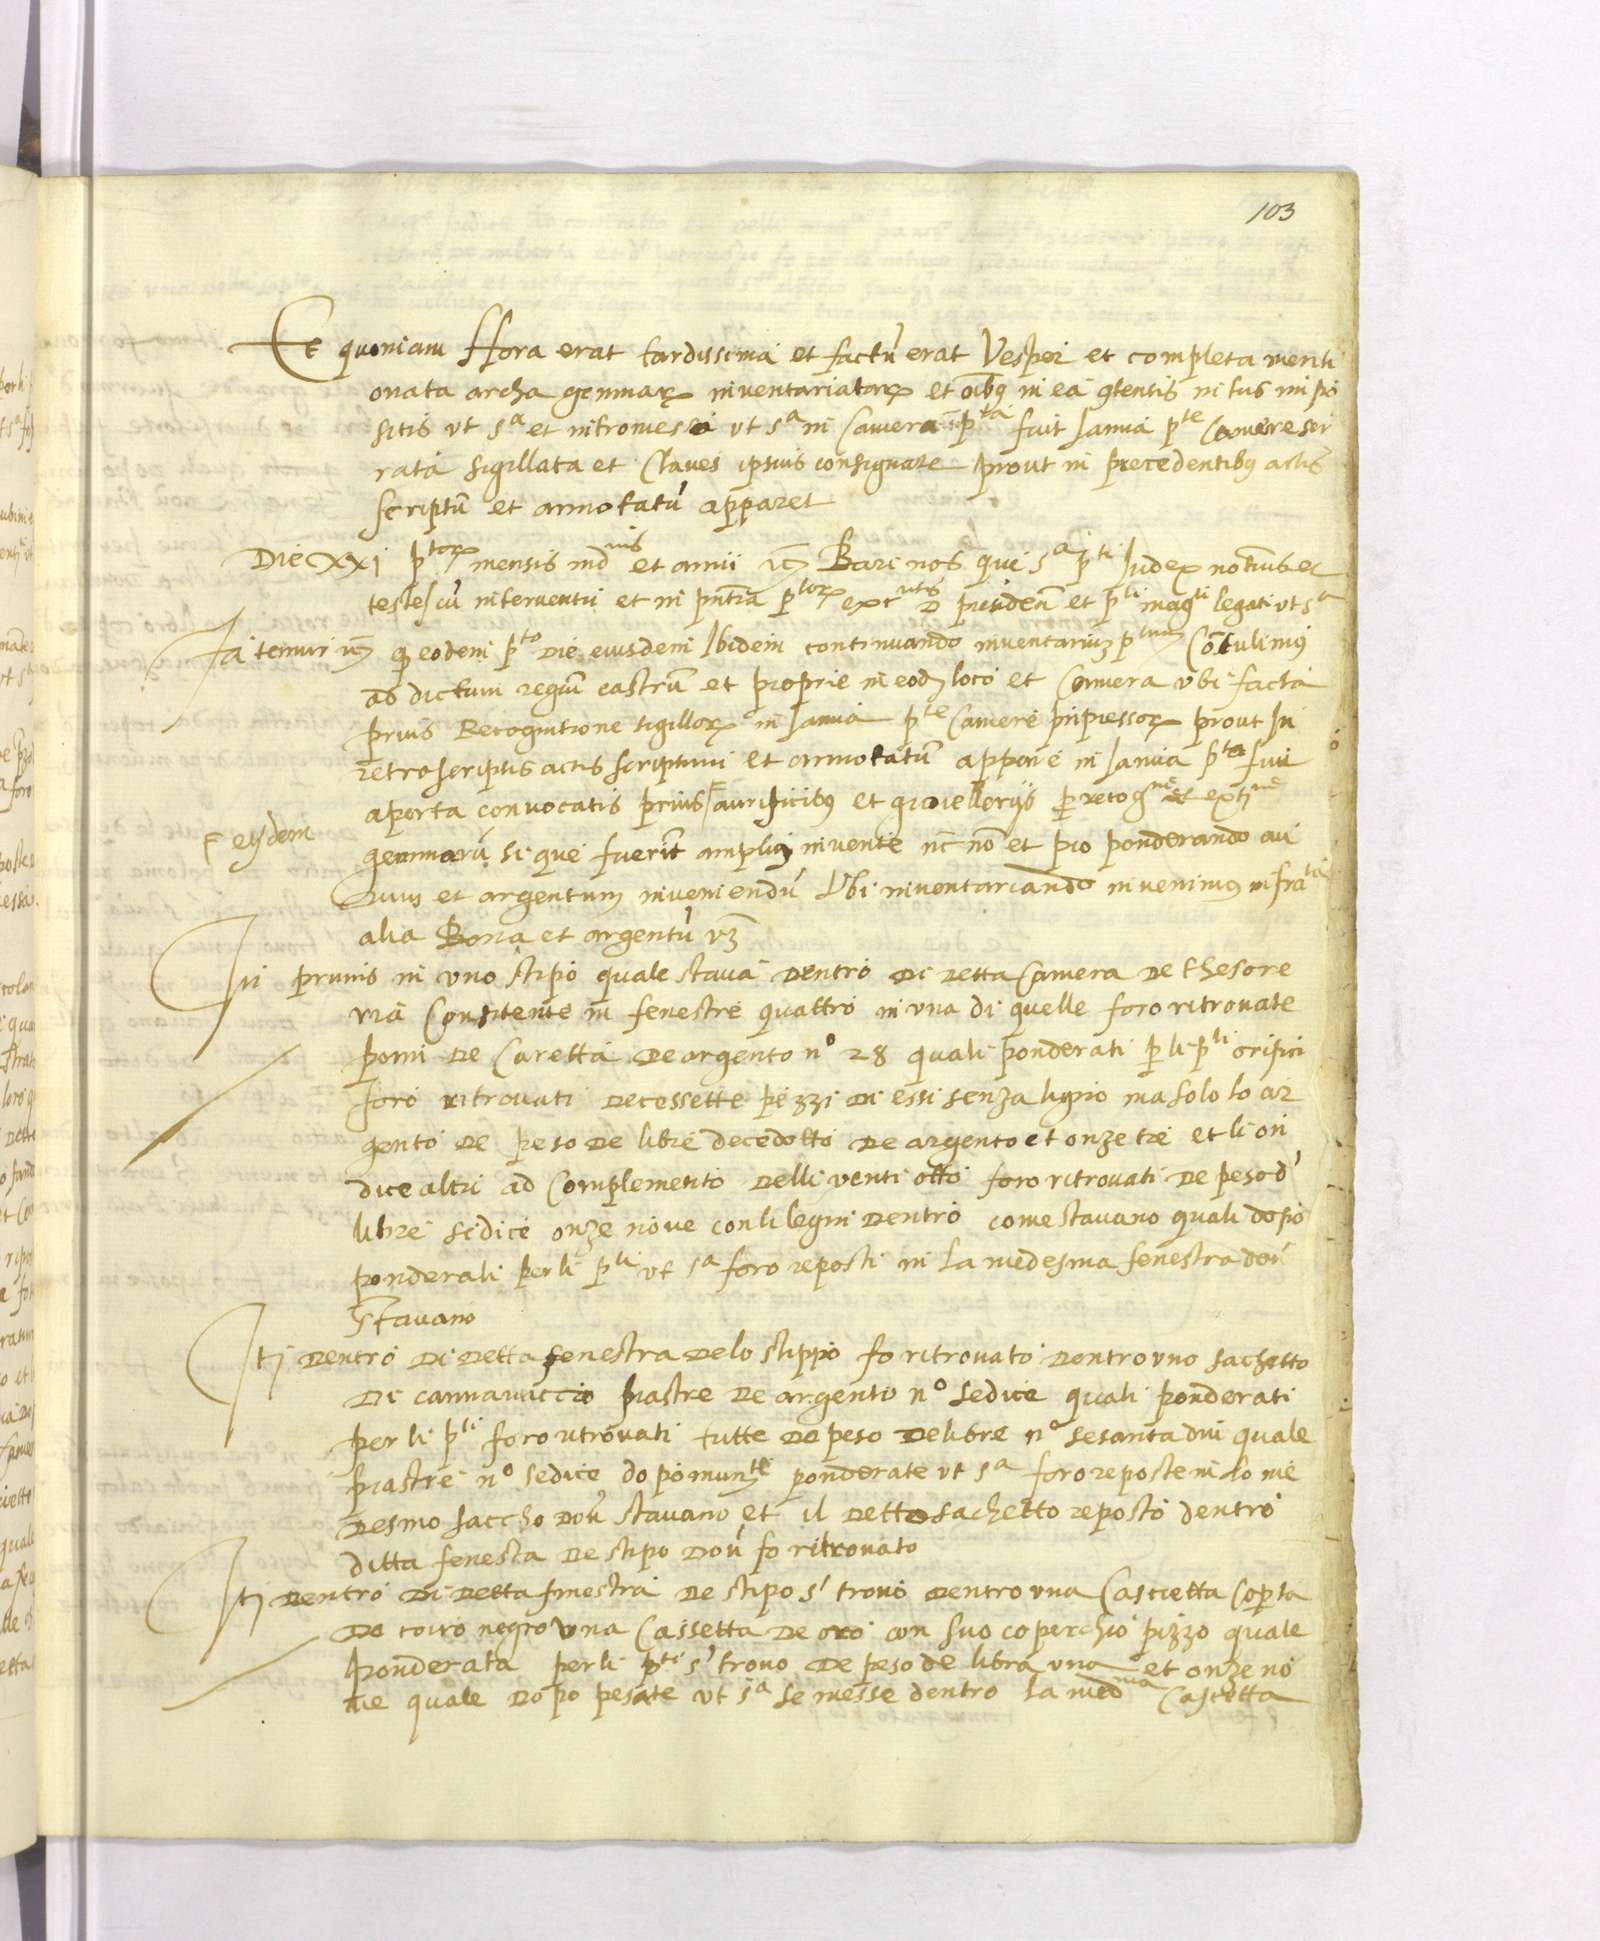 103
Et quoniam Hora erat tardissima et factũ erat Vesper et completa menti
onata archa gemmarꝝ inventariatarꝝ et oĩbꝰ in ea ꝯtentis intus impo
sitis ut sᵃ et intromessa ut sᵃ in Camera pᵗᵃ fuit Janua pᵗᵉ Camere ser
rata sigillata et Claves ipsius consignate prout in precedentibꝰ actis
scriptũ et annotatũ apparet
Die xxj pᵗᵒʳꝝ mensis indⁿⁱˢ et anni Bari nos qui sᵃ pᵗⁱ Judex notarius et
testes cũ interventu et in pñtia pᵗᵒʳꝝ presideñ et pᵗⁱ magᵗⁱ legati ut sᵃ
Fatemur qͥ eodem pᵗᵒ Die eiusdem Ibidem continuando inventariũ pᵗᵘᵐ Cõtulimus
ad dictum regiũ castrũ et proprie in eodẽ loco et Camera ubi facta
prius Recognitione sigillorꝝ in Janua pᵗᵉ Camere impressorꝝ prout In
retroscriptis actis scriptum et annotatũ apparet Janua pᵗᵃ fuit
aperta convocatis prius aurificibꝰ et gioielleriis
eisdem
gemmarũ si que fuerĩt amplius invente et pro ponderando au
rum et argentum inveniendũ Ubi inventariando invenimus infraᵗᵃ
alia Bona et argentũ vꝫ
In primis in uno stipo quale stava dentro di detta Camera de thesore
ria Consitente in fenestre quattro in una di quelle foro ritrovate
pomi de Caretta de argento nº 28 quali ponderati p li pᵗⁱ orifici
foro ritrovati decessette pezzi di essi senza ligno ma solo lo ar
gento de peso de libre decedotto de argento et onze tre et li on
dice altri ad Complemento delli venti otto foro ritrovati de peso d'
libre sidice onze nove con li legni dentro come stavano quali dopo
ponderati per li pᵗⁱ ut sᵃ foro reposti in la medesma fenestra dov'
stavano
Itj dentro di detta fenestra de lo stippo fo ritrovato dentro uno sachetto
di cannavaccio piastre de argento nº sedice quali ponderati
per li pᵗⁱ foro ritrovati tutte de peso de libre nº sesanta dui quale
piastre nº sedice dopo ponderate ut sᵃ foro reposte in lo me
desmo saccho dov' stavano et il detto sachetto reposto dentro
ditta fenesta de stipo dov' fo ritrovato
Itj dentro di detta finestra de stipo s' trovò dentro una Cascietta Coperta
de coiro negro una Cassetta de oro con suo coperchio pizzo quale
ponderata per li pᵗⁱ s' trovo de peso de libra una et onze no
ve quale dopo pesate ut sᵃ se messe dentro la medᵐᵃ Cascetta